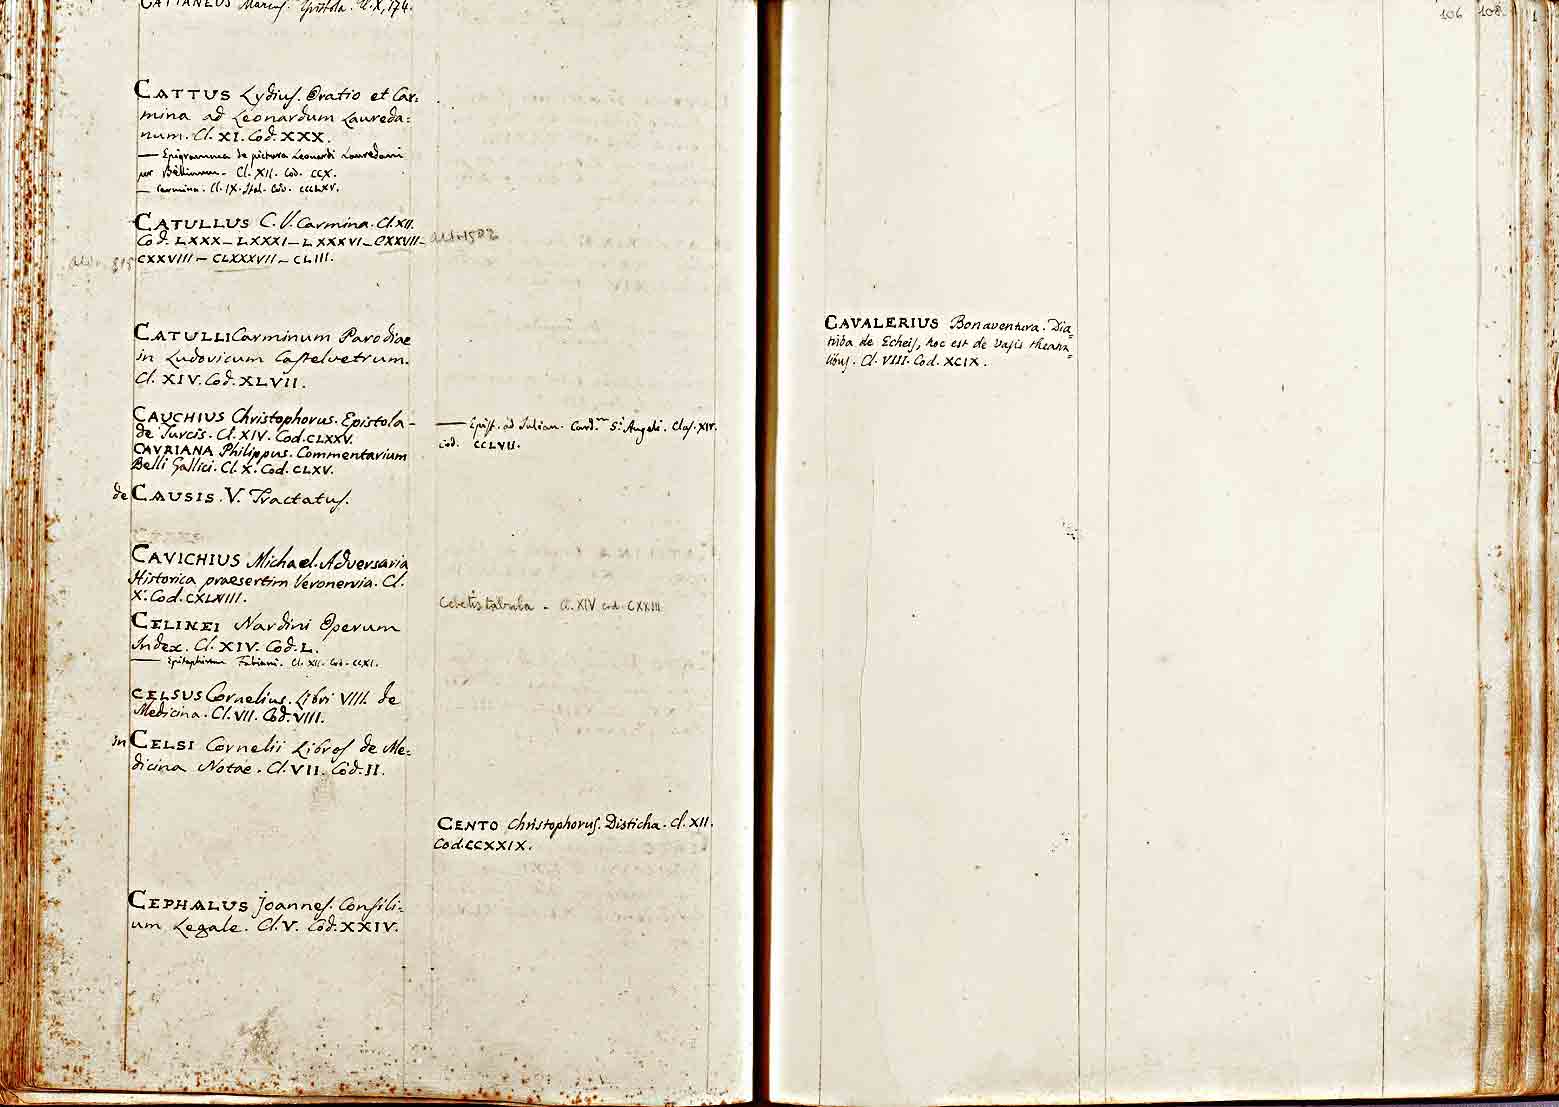 CATTANEUS Marius. Epistola. Cl. X, 174.
CATTUS Lydius. Oratio et Car=
mina ad Leonardum Laureda=
num. Cl. XI. Cod. XXX.
— Epigramma de pictura Leonardi Lauredani
per Bellinum. Cl. XII. Cod. CCX.
— Carmina. Cl. IX. Ital. Cod. CCCLXV.
CATULLUS C. V. Carmina. Cl. XII.
Cod. LXXX – LXXXI – LXXXVI – CXXVII –
CXXVIII – CLXXXVII – CLIII.
CATULLI Carminum Parodiae
in Ludovicum Castelvetrum.
Cl. XIV. Cod. XLVII.
CAUCHIUS Christophorus. Epistola
de Turcis. Cl. XIV. Cod. CLXXV.
CAVRIANA Philippus. Commentarium
Belli Gallici. Cl. X. Cod. CLXV.
de CAUSIS. V. Tractatus.
CAVICHIUS Michael. Adversaria
Historica praesertim Veronensia. Cl.
X. Cod. CXLVIII.
CELINEI Nardini Operum
Index. Cl. XIV. Cod. L.
— Epitaphium Fabiani. Cl. XII. Cod. CCXI.
CELSUS Cornelius. Libri VIII. de
Medicina. Cl. VII. Cod. VIII.
in CELSI Cornelii Libros de Me=
dicina Notae. Cl. VII. Cod. II.
CEPHALUS Joannes. Consili=
um Legale. Cl. V. Cod. XXIV.
Ald. 1502
— Epist. ad Julian. Card.m S.i Angeli. Clas. XIV.
Cod. CCLVII.
Cebetis tabula – Cl. XIV cod. CXXIII
CENTO Christophorus. Disticha. Cl. XII.
Cod. CCXXIX.
106 108.
CAVALERIUS Bonaventura. Dia=
triba de Echeis, hoc est de vasis theatra=
libus. Cl. VIII. Cod. XCIX.